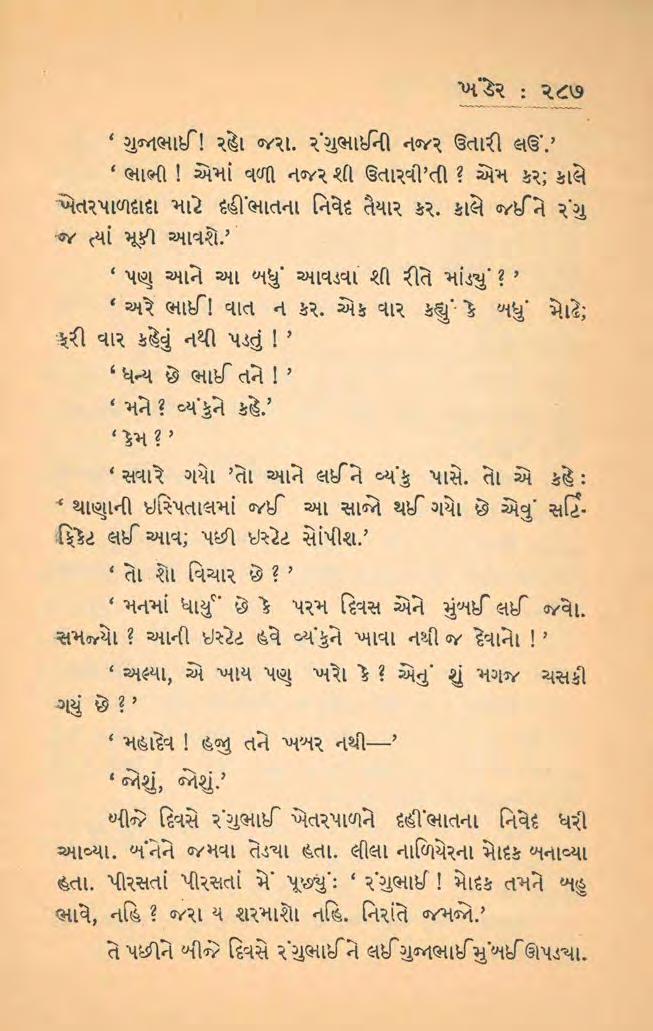 ખંડેર : ૨૮૭
‘ ગુજાભાઈ! રહો જરા. રંગુભાઈની નજર ઉતારી લઉં.’
‘ ભાભી ! એમાં વળી નજર શી ઉતારવી’તી ? એમ કર; કાલે
ખેતરપાળદાદા માટે દહીંભાતના નિવેદ તૈયાર કર. કાલે જઈને રંગુ
જ ત્યાં મૂકી આવશે.’
‘ પણ આને આ બધું આવડવા શી રીતે માંડ્યું ? ’
‘ અરે ભાઈ! વાત ન કર. એક વાર કહ્યું કે બધું મોઢે;
ફરી વાર કહેવું નથી પડતું ! ’
‘ ધન્ય છે ભાઈ તને ! ’
‘ મને ? વ્યંકુને કહે.’
‘ કેમ ? ’
‘ સવારે ગયો ’તો આને લઈને વ્યંકુ પાસે. તો એ કહે :
‘ થાણાની ઇસ્પિતાલમાં જઈ આ સાજો થઈ ગયો છે એવું સર્ટિ-
ફિકેટ લઈ આવ; પછી ઇસ્ટેટ સોંપીશ.’
‘ તો શો વિચાર છે ? ’
‘ મનમાં ધાર્યું છે કે પરમ દિવસ એને મુંબઈ લઈ જવો.
સમજ્યો ? આની ઇસ્ટેટ હવે વ્યંકુને ખાવા નથી જ દેવાનો ! ’
‘ અલ્યા, એ ખાય પણ ખરો કે ? એનું શું મગજ ચસકી
ગયું છે ? ’
‘ મહાદેવ ! હજી તને ખબર નથી—’
‘ જોશું, જોશું.’
બીજે દિવસે રંગુભાઈ ખેતરપાળને દહીંભાતના નિવેદ ધરી
આવ્યા. બંનેને જમવા તેડ્યા હતા. લીલા નાળિયેરના મોદક બનાવ્યા
હતા. પીરસતાં પીરસતાં મેં પૂછ્યું : ‘ રંગુભાઈ ! મોદક તમને બહુ
ભાવે, નહિ ? જરા ય શરમાશો નહિ. નિરાંતે જમજો.’
તે પછીને બીજે દિવસે રંગુભાઈને લઈ ગુજાભાઈ મુંબઈ ઊપડ્યા.